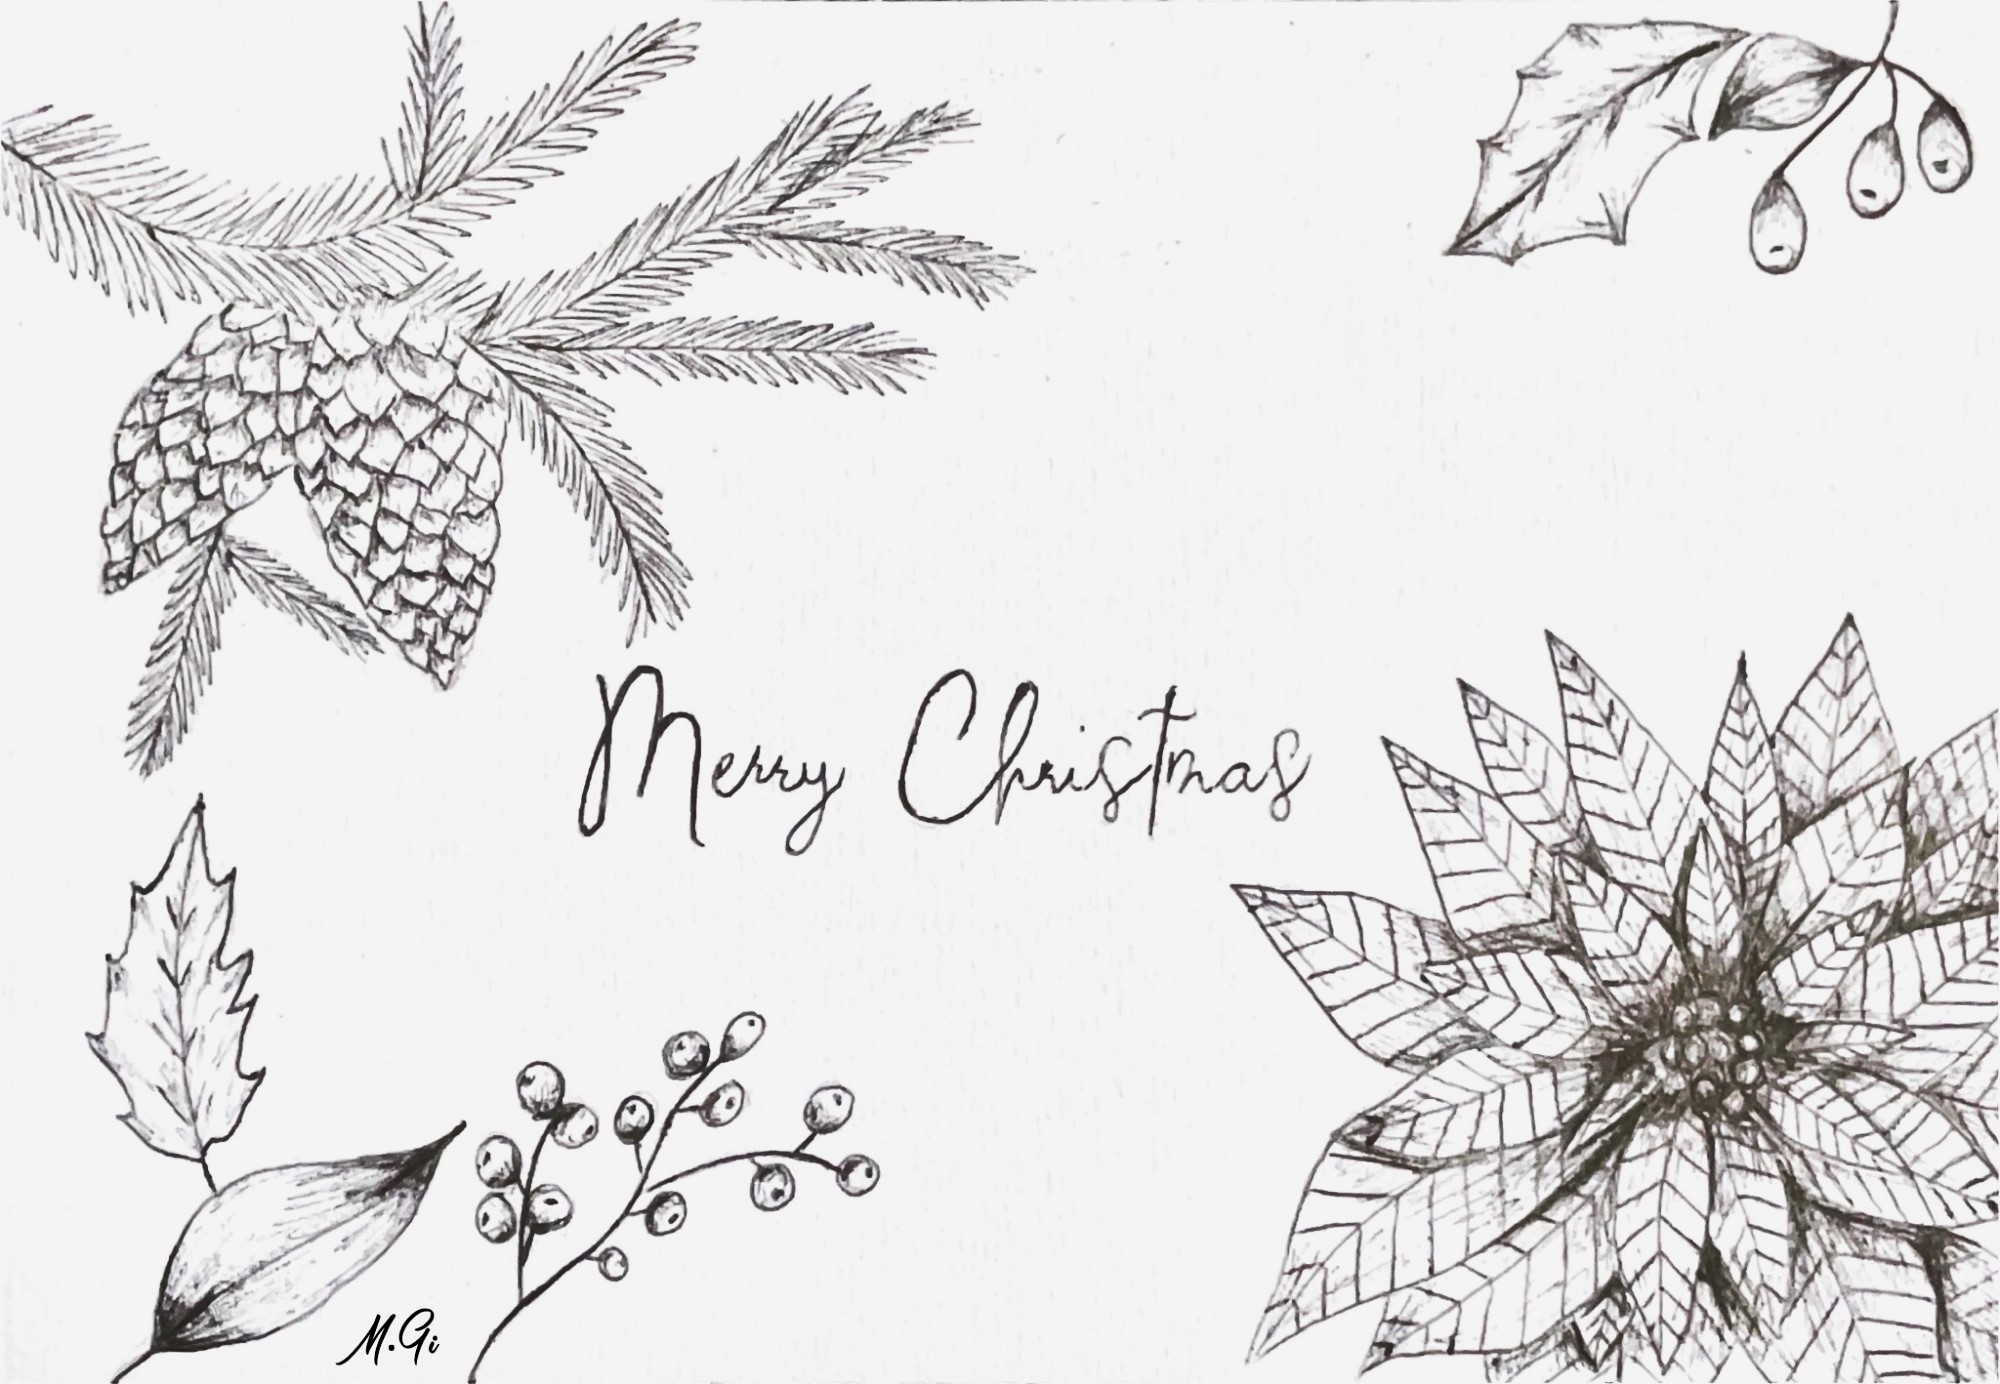 Merry Christmas
M.Gi